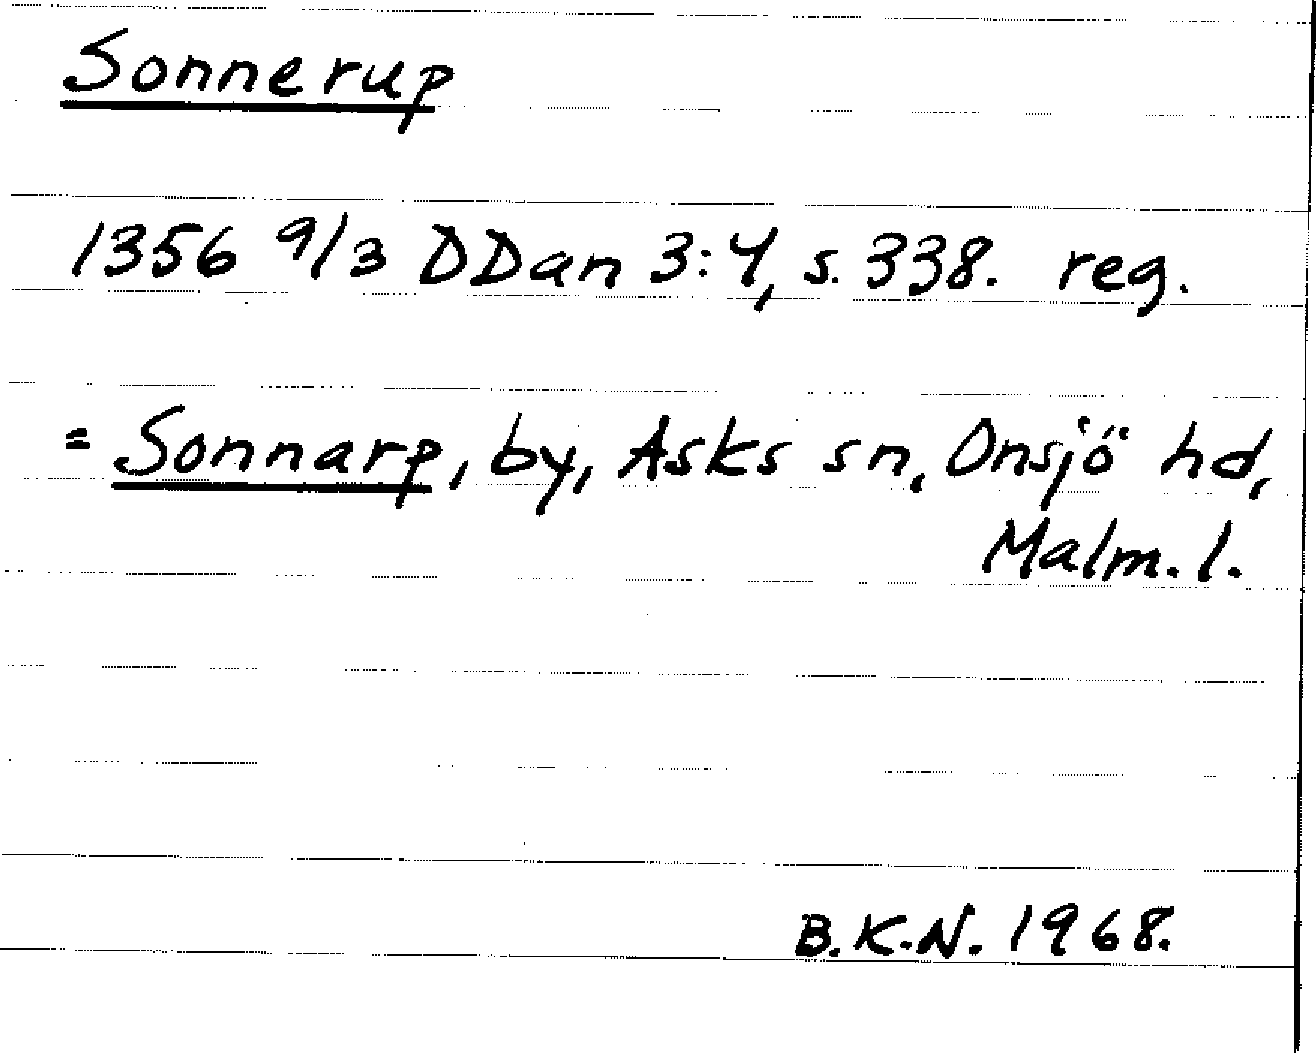 Sonnerup
1356 9/3 DDan 3:4, s. 338. reg.
= Sonnarp, by, Asks sn, Onsjö hd,
Malm. l.
B.K.N. 1968.